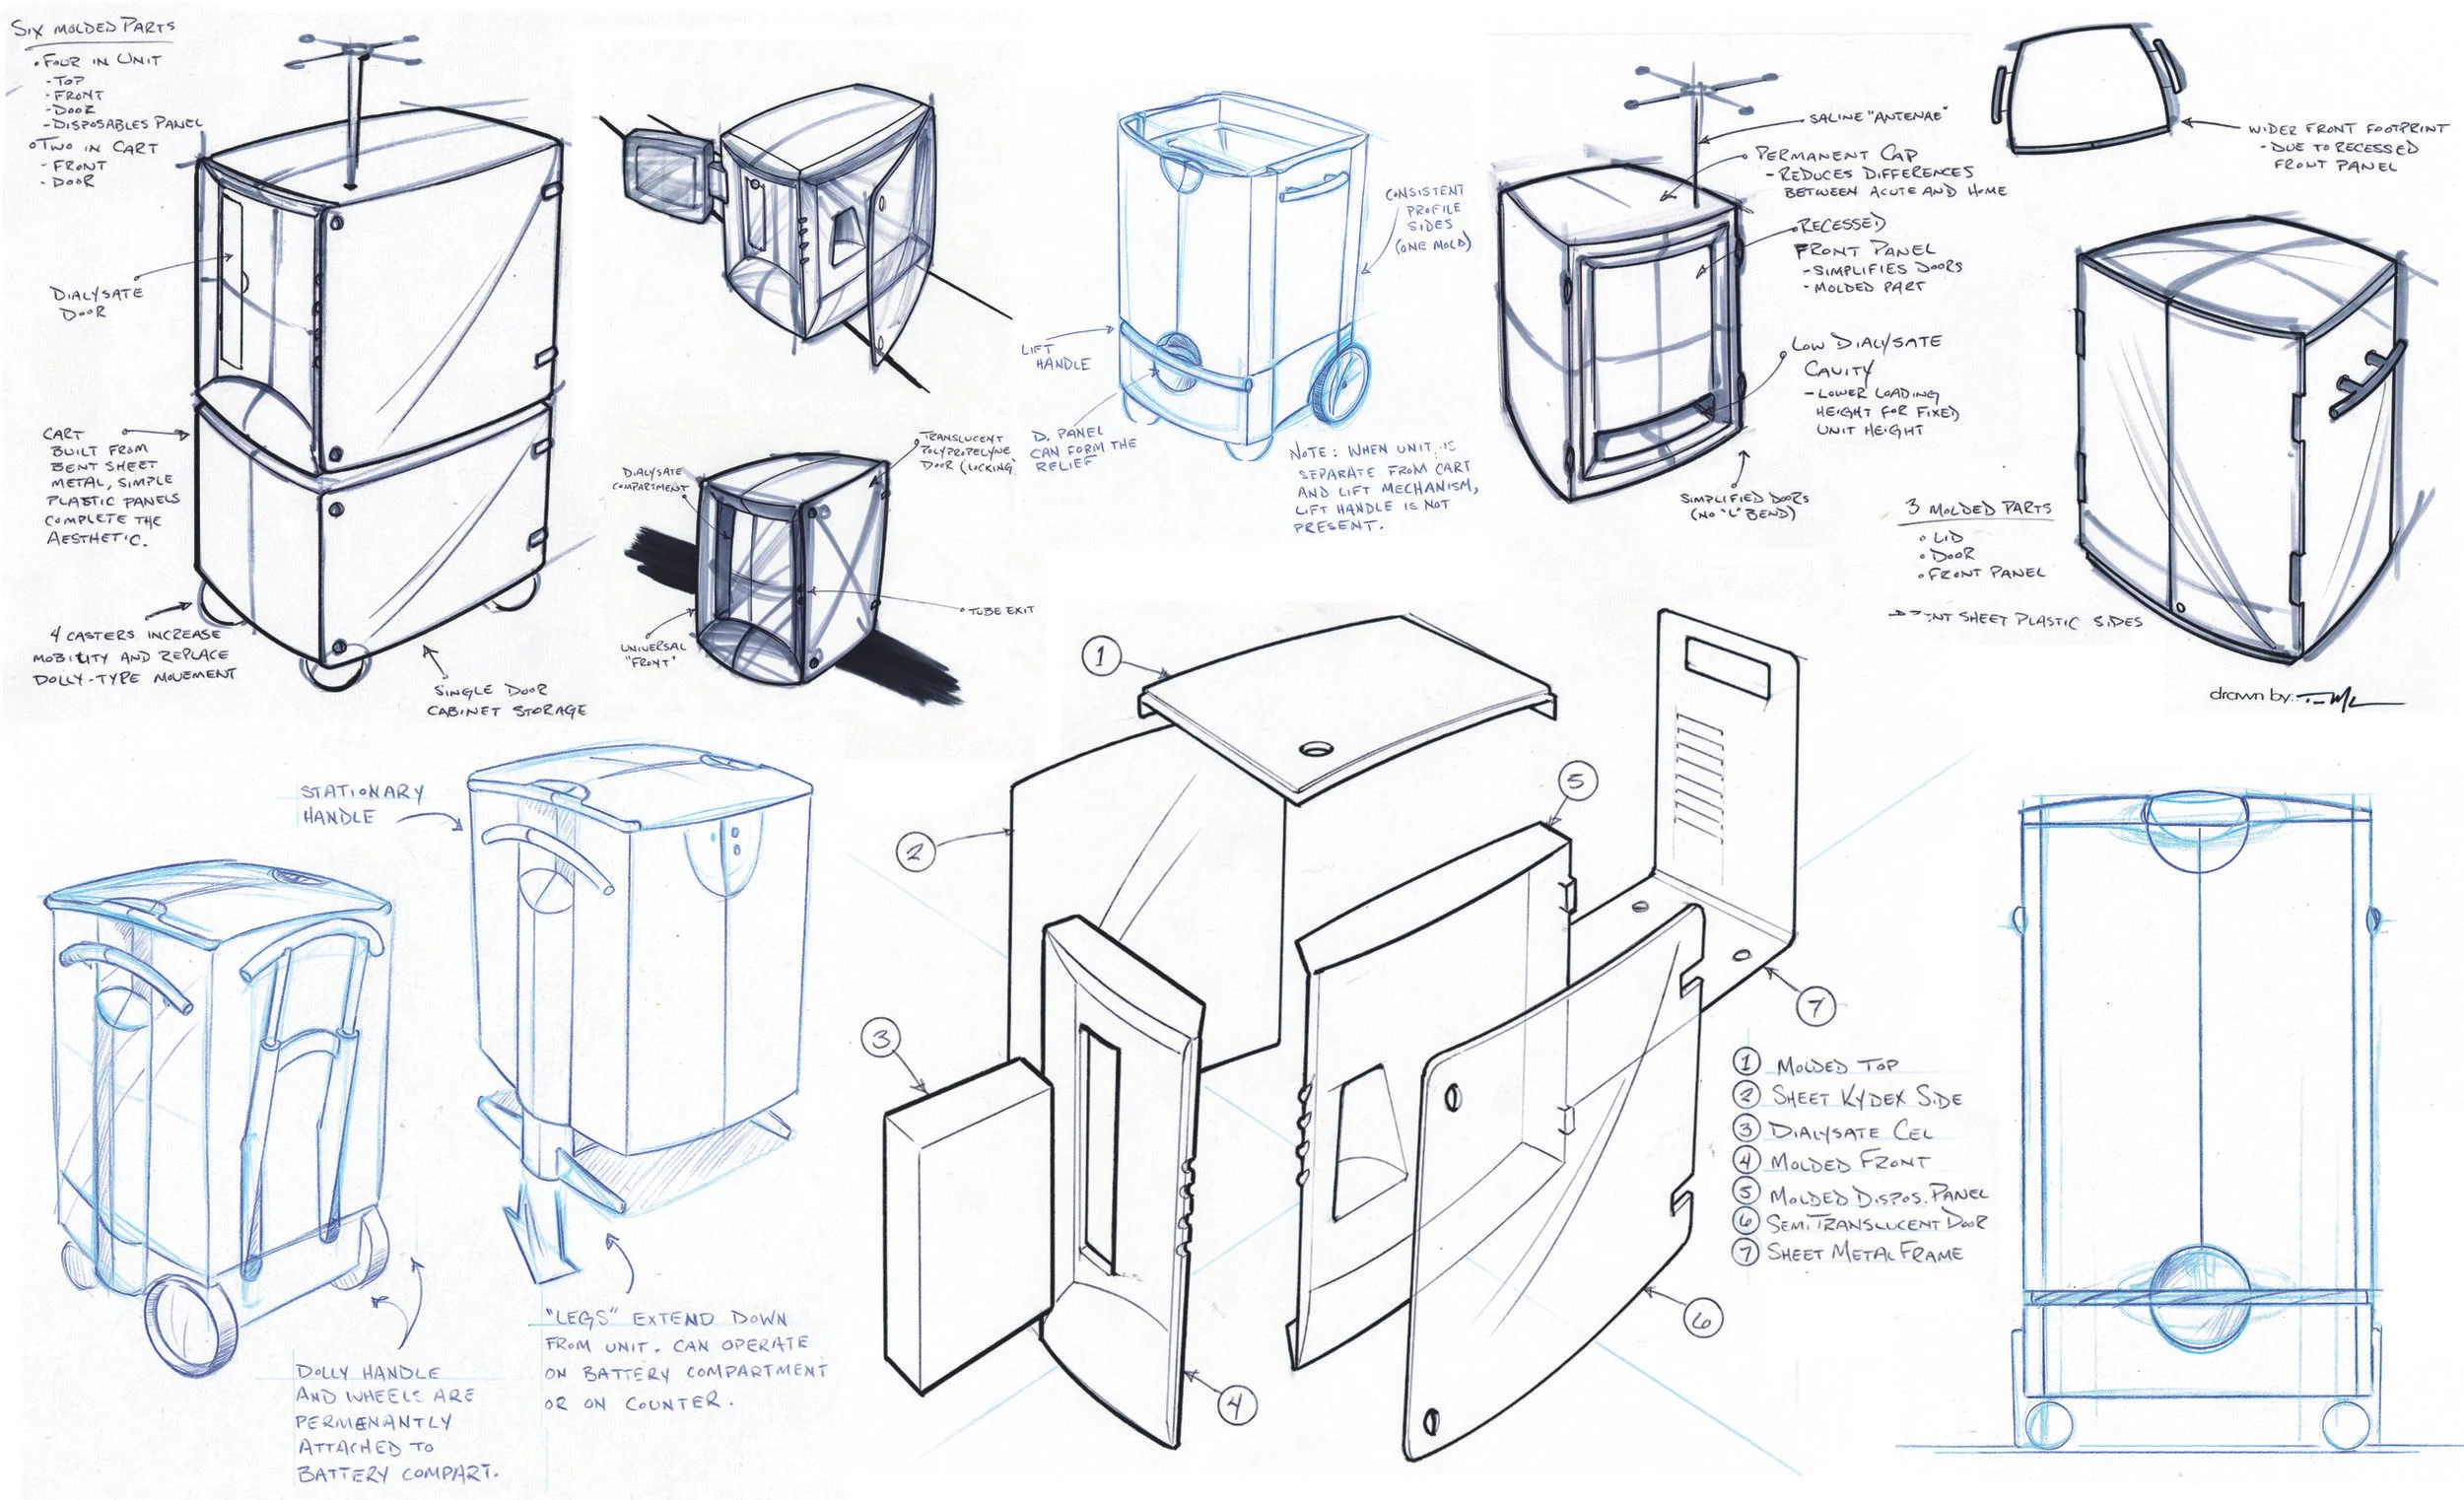 SIX MOLDED PARTS
• FOUR IN UNIT
- TOP
- FRONT
- DOOR
- DISPOSABLES PANEL
○ TWO IN CART
- FRONT
- DOOR
DIALYSATE
DOOR
CART
BUILT FROM
BENT SHEET
METAL, SIMPLE
PLASTIC PANELS
COMPLETE THE
AESTHETIC.
4 CASTERS INCREASE
MOBILITY AND REPLACE
DOLLY-TYPE MOVEMENT
SINGLE DOOR
CABINET STORAGE
DIALYSATE
COMPARTMENT
TRANSLUCENT
POLYPROPELYNE
DOOR (LOCKING)
TUBE EXIT
UNIVERSAL
"FRONT"
CONSISTENT
PROFILE
SIDES
(ONE MOLD)
LIFT
HANDLE
D. PANEL
CAN FORM THE
RELIEF
NOTE: WHEN UNIT IS
SEPARATE FROM CART
AND LIFT MECHANISM,
LIFT HANDLE IS NOT
PRESENT.
SALINE "ANTENAE"
PERMANENT CAP
- REDUCES DIFFERENCES
BETWEEN ACUTE AND HOME
RECESSED
FRONT PANEL
- SIMPLIFIES DOORS
- MOLDED PART
LOW DIALYSATE
CAVITY
- LOWER LOADING
HEIGHT FOR FIXED
UNIT HEIGHT
SIMPLIFIED DOORS
(NO "L" BEND)
WIDER FRONT FOOTPRINT
- DUE TO RECESSED
FRONT PANEL
3 MOLDED PARTS
○ LID
○ DOOR
○ FRONT PANEL
SHEET PLASTIC SIDES
drawn by:
STATIONARY
HANDLE
DOLLY HANDLE
AND WHEELS ARE
PERMENANTLY
ATTACHED TO
BATTERY COMPART.
"LEGS" EXTEND DOWN
FROM UNIT. CAN OPERATE
ON BATTERY COMPARTMENT
OR ON COUNTER.
1
2
3
4
5
6
7
① MOLDED TOP
② SHEET KYDEX SIDE
③ DIALYSATE CEL
④ MOLDED FRONT
⑤ MOLDED DISPOS. PANEL
⑥ SEMITRANSLUCENT DOOR
⑦ SHEET METAL FRAME